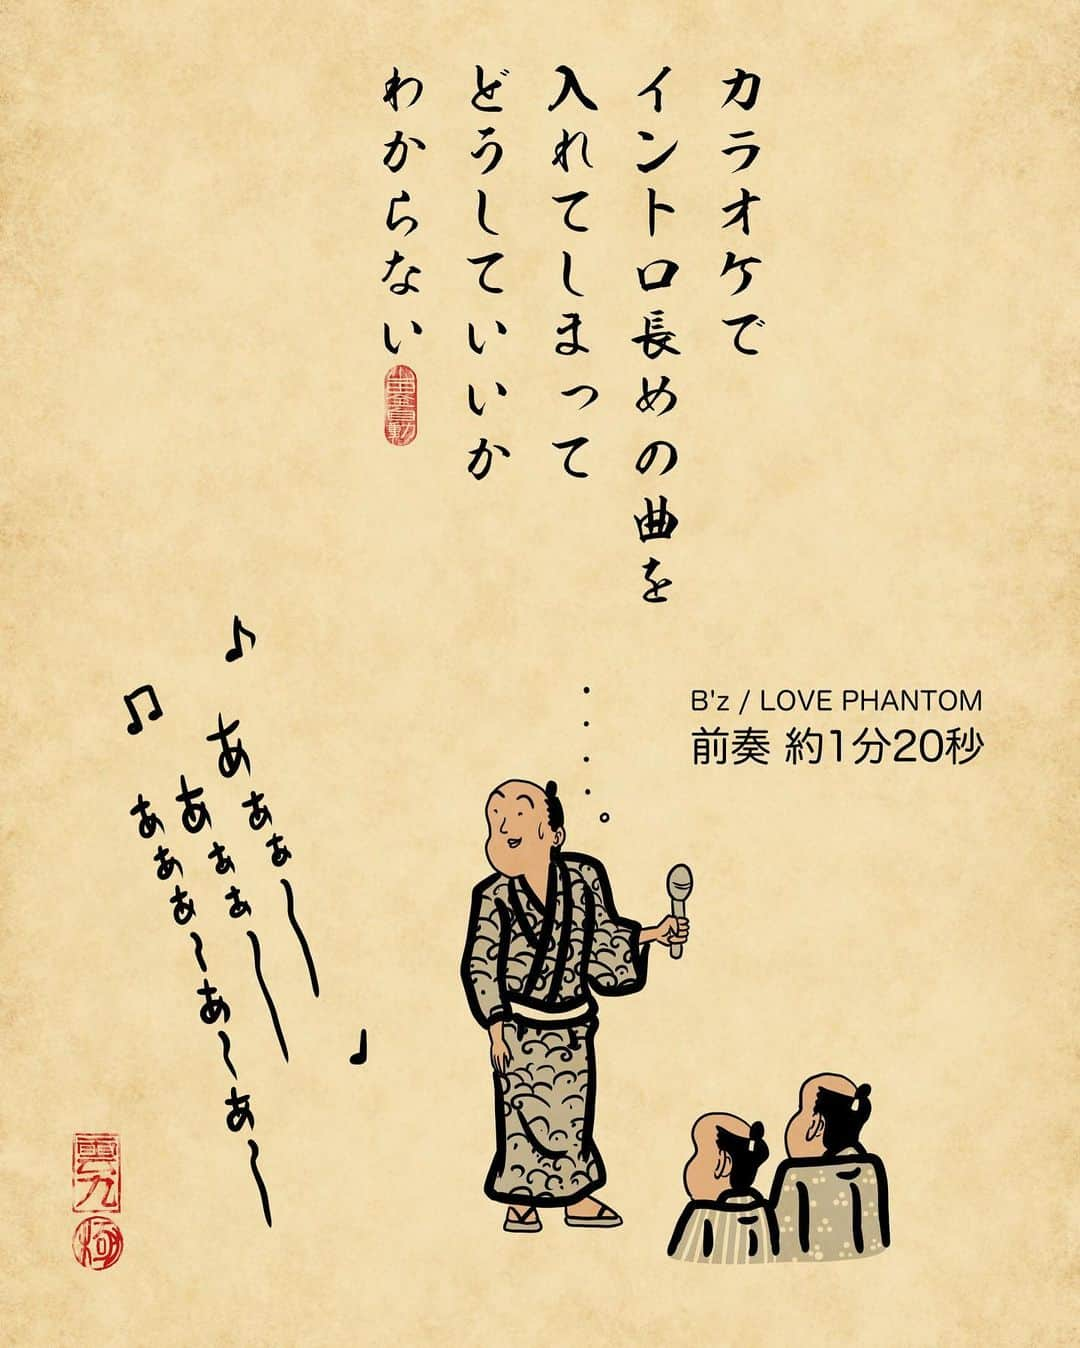 カラオケで
イントロ長めの曲を
入れてしまって
どうしていいか
わからない
B'z / LOVE PHANTOM
前奏 約1分20秒
あぁぁ〜
あぁぁ〜
ぁぁぁ〜ぁ〜ぁ〜